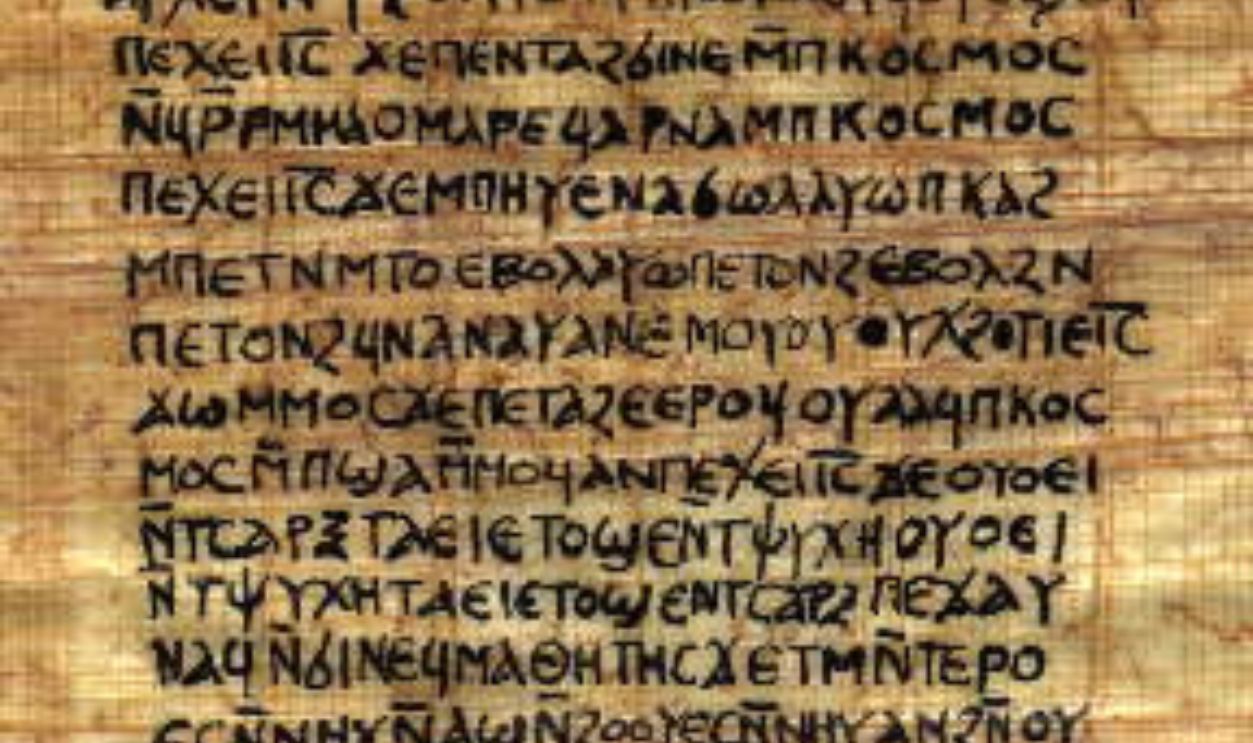 ⲠⲈϪⲈⲒⲤ̅ ϪⲈⲠⲈⲚⲦⲀϨϬⲒⲚⲈ Ⲙ̅ⲠⲔⲞⲤⲘⲞⲤ
Ⲛ̅ϤⲢ̅ⲢⲘⲘⲀⲞⲘⲀⲢⲈϤⲀⲢⲚⲀⲘⲠⲔⲞⲤⲘⲞⲤ
ⲠⲈϪⲈⲒⲤ̅ϪⲈⲘⲠⲎⲨⲈⲚⲀϬⲰⲖⲀⲨⲰⲠⲔⲀϨ
ⲘⲠⲈⲦⲚⲘⲦⲞ ⲈⲂⲞⲖⲀⲨⲰⲠⲈⲦⲞⲚϨ ⲈⲂⲞⲖϨⲚ
ⲠⲈⲦⲞⲚϨϤⲚⲀⲚⲀⲨⲀⲚⲈ ⲘⲞⲨⲞⲨ ⲞⲨⲬϨⲞⲦⲒⲈⲒⲤ̅
ϪⲰ ⲘⲘⲞⲤϪⲈⲠⲈⲦⲀϨⲈⲈⲢⲞϤ ⲞⲨⲀⲀϤⲠⲔⲞⲤ
ⲘⲞⲤⲘ̅ⲠϢⲀⲘ̅ⲘⲞϤⲀⲚⲠⲈϪⲈⲒⲤ̅ ϪⲈ ⲞⲨⲞⲈⲒ
Ⲛ̅ⲦⲤⲀⲢⲜ ⲦⲀⲈⲒ ⲈⲦⲞϢⲈⲚ̅ⲦⲮⲨⲬⲎ ⲞⲨⲞⲈⲒ
ⲚⲦⲮⲨⲬⲎⲦⲀⲈⲒⲈⲦⲞϢ ⲈⲚⲦⲤⲀⲢϨ ⲠⲈϪⲀⲨ
ⲚⲀϤ Ⲛ̅ϬⲒⲚⲈϤⲘⲀⲐⲎⲦⲎⲤϪⲈⲦⲘⲚ̅ⲦⲈⲢⲞ
ⲈⲤⲚ̅ⲚⲎⲨⲚ̅ⲀϢⲚ̅ϨⲞⲞⲨⲈⲤⲚ̅ⲚⲎⲨⲀⲚϨⲚ̅ ⲞⲨ